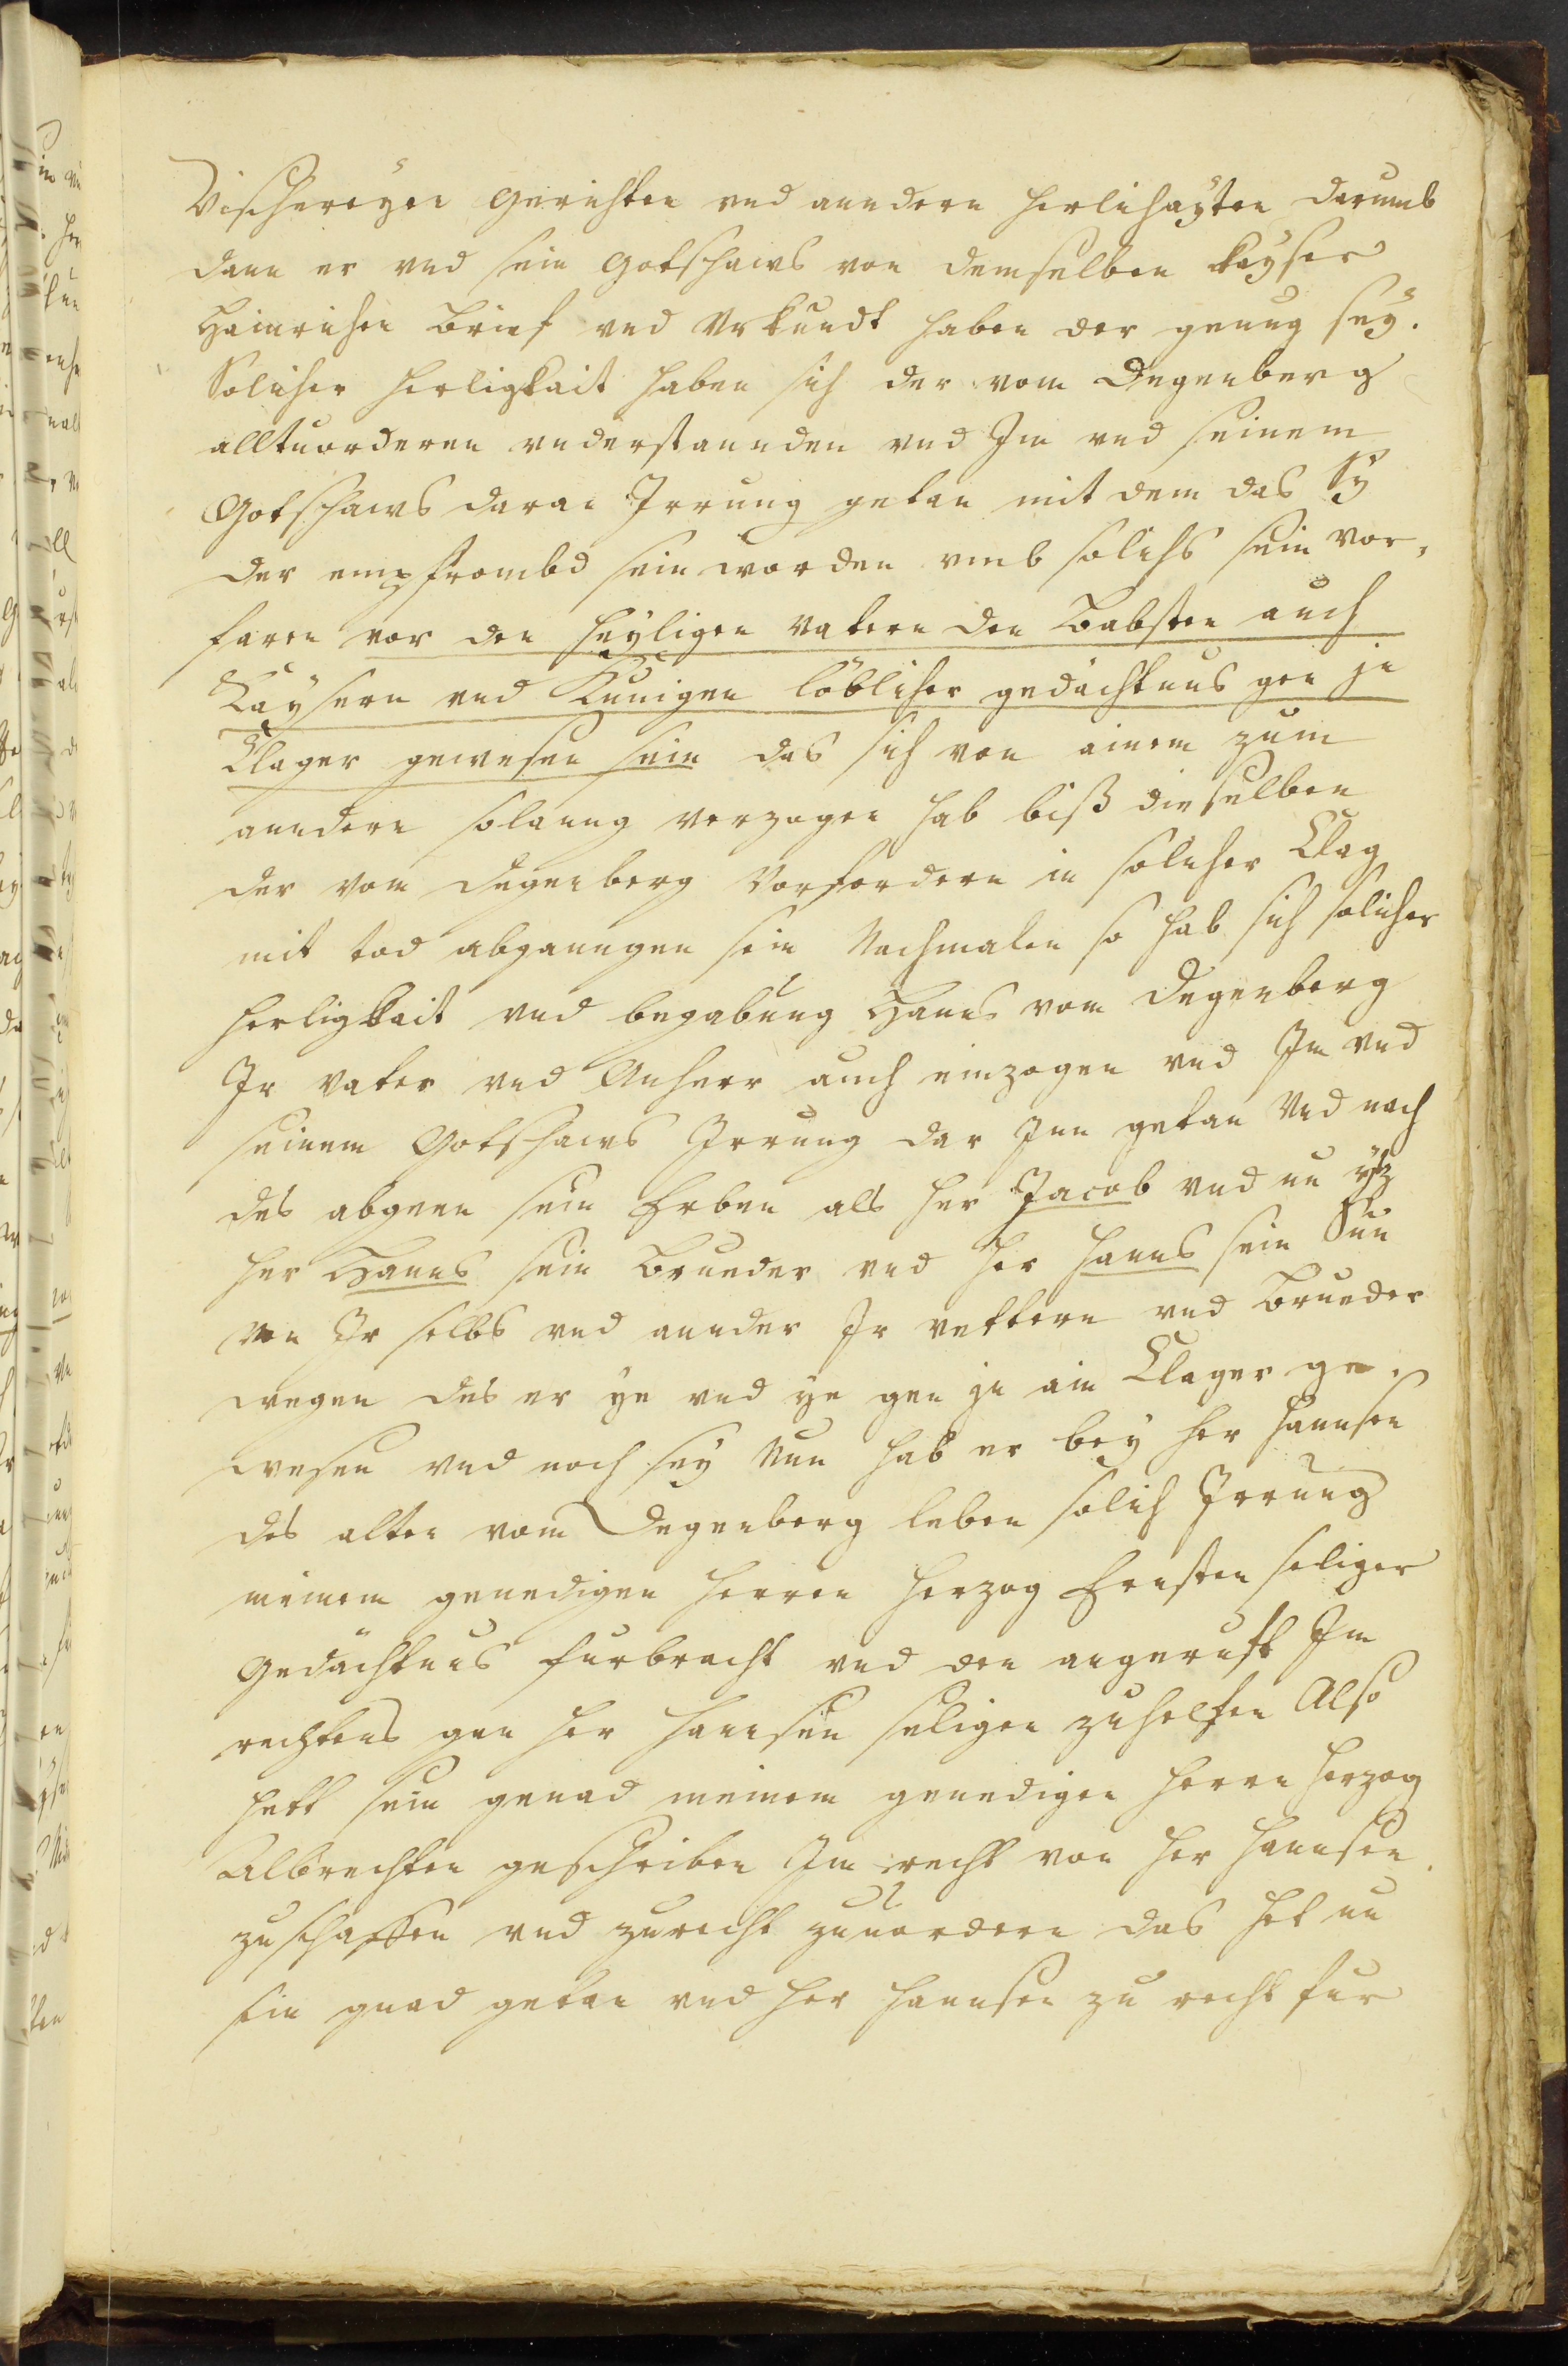 Vischereÿen Gerichten vnd anndern herlichaÿten darumb
dann er vnd sein Gotshaws von demselben kaÿser
Hainrichen Brief vnd Vrkundt haben der genug seÿ.
Solicher herligkait haben sich der vom Degenberg
alltuorderen vnderstannden vnd Im vnd seinem
Gotshaws daran Irrung getan mit dem das Sÿ
der emphrombd sein worden vmb solichs sein vor,
faren vor den heÿligen vatern den Babsten auch
Kaÿsern vnd Kunigen löblicher gedächtnus gen jn
Clager gewesen sein das sich von ainem zum
anndern solanng verzogen hab biß dieselben
der vom Degenberg Vorfordern in solicher Clag
mit tod abganngen sein Nachmalen so hab sich solicher
herligkait vnd begabung Hanns vom Degenberg
Ir vater vnd Anherr auch einzogen vnd Im vnd
seinem Gotshaws Irrung dar Inn getan Vnd nach
des abgeen sein Erben als her Jacob vnd nu ÿtz
her Hanns sein Brueder vnd her Hanns sein Sun
von Ir selbs vnd annder Ir vettern vnd Brueder
wegen des er ye vnd ye gen jn ain Clager ge,
wesen vnd noch seÿ Nun hab er beÿ her Hannsen
des alten vom Degenberg leben solich Irrung
meinem genedigen herren herzog Ernsten seliger
Gedächtnus furbracht vnd den angeruft Im
rechtens gen her Hannsen seligen zuhelfen Also
hett sein genad meinem genedigen herrn herzog
Albrechten geschriben Im recht von her Hannsen
zuschaffen vnd zurecht zuuordern das het nu
sein gnad getan vnd her Hannsen zu recht fur